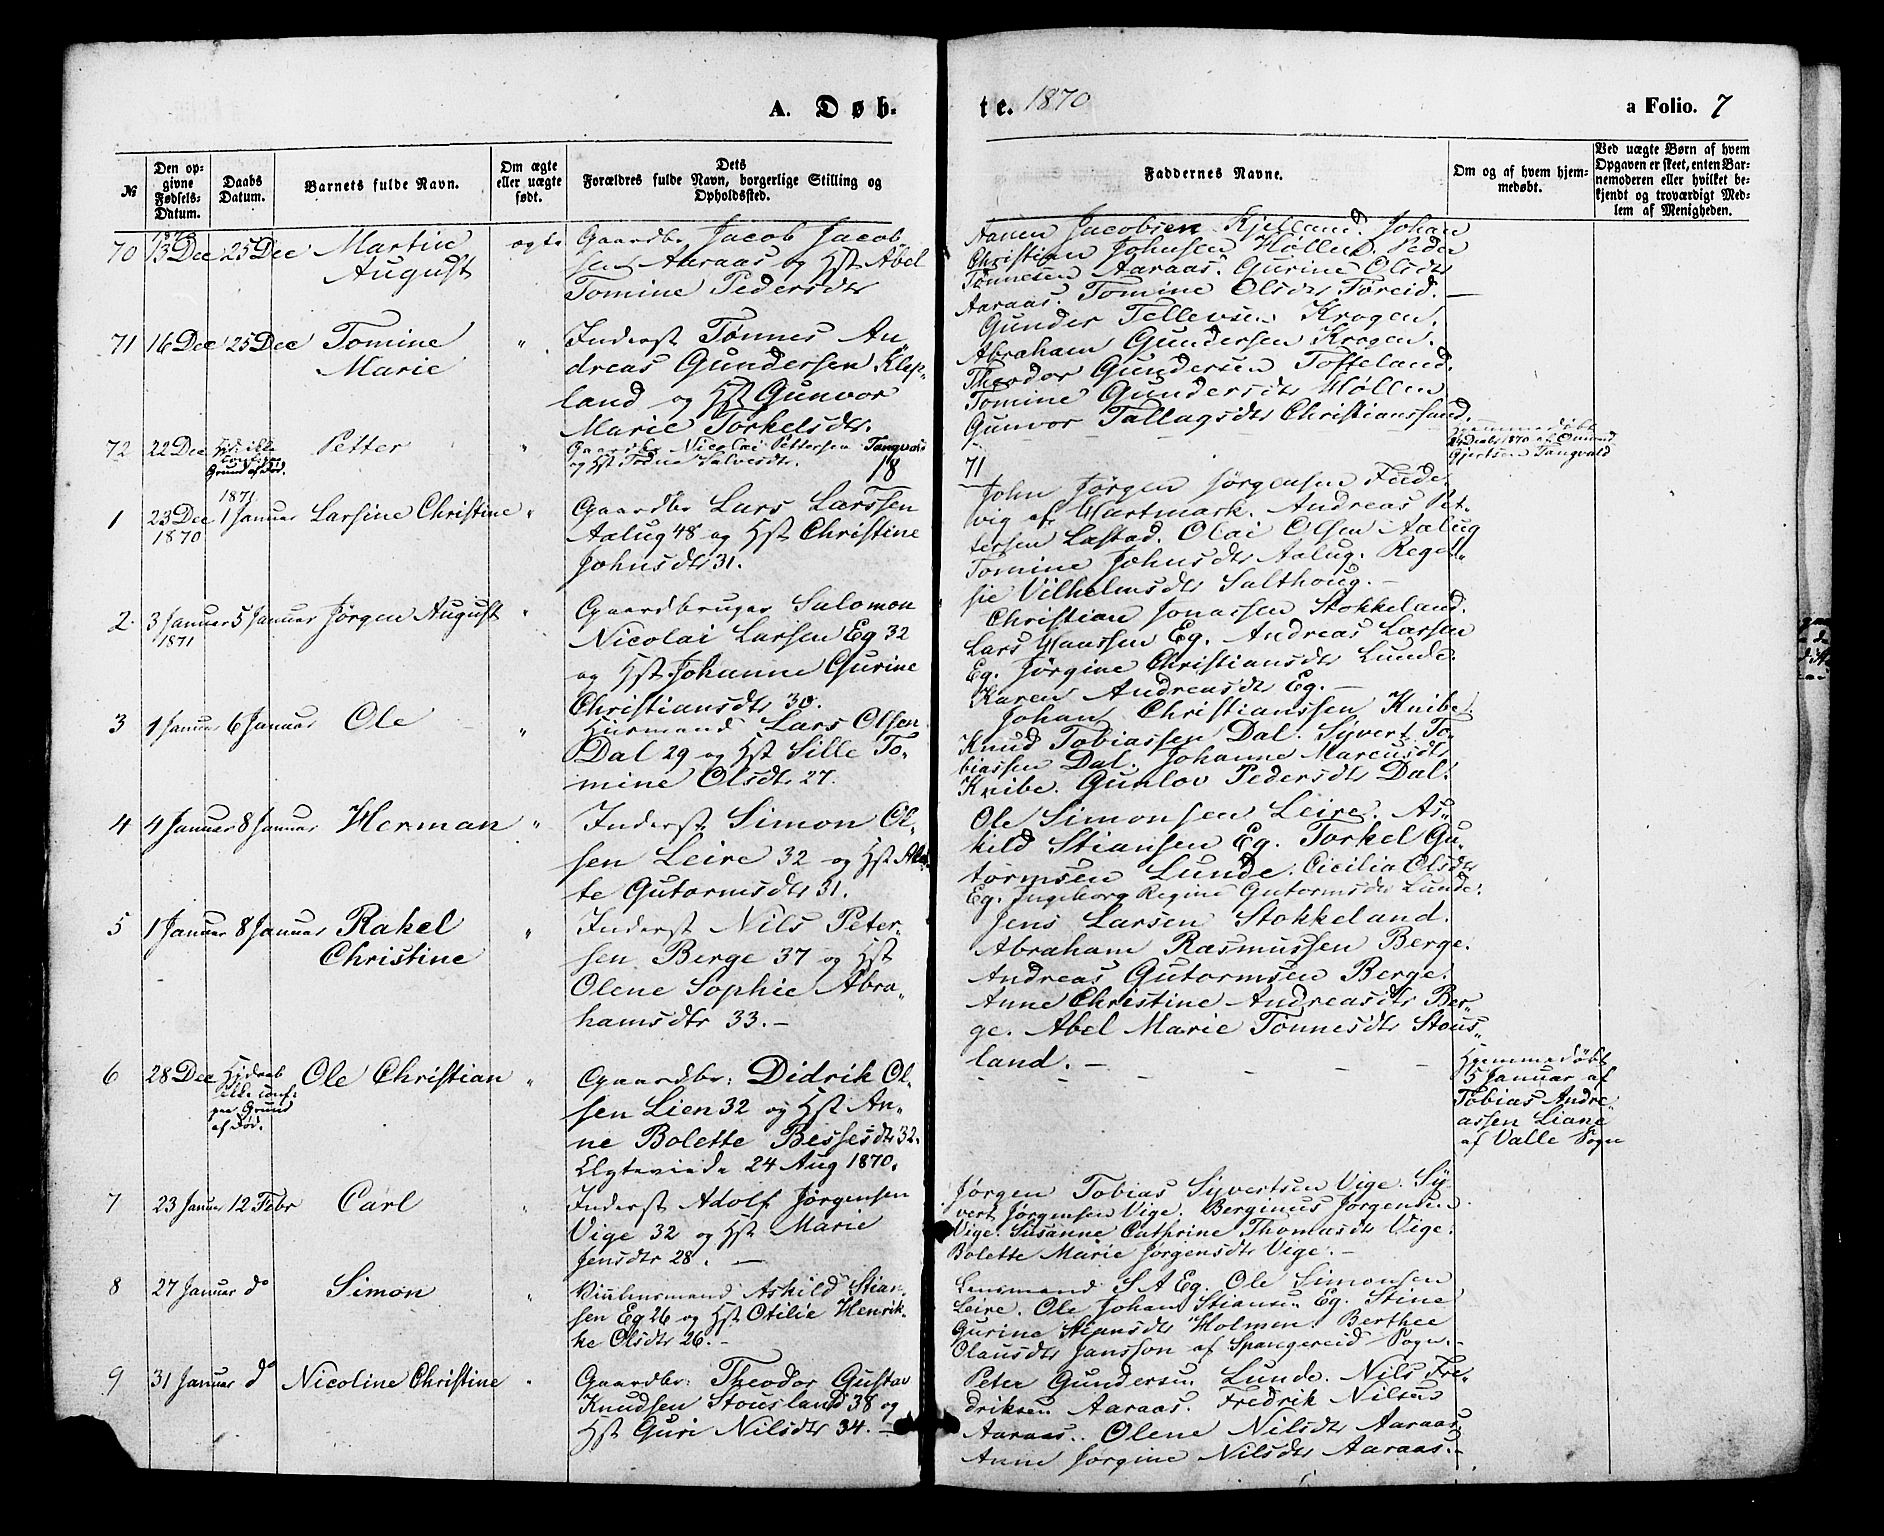 A. Døb-
te. 1870
a Folio. 7
№
Den op-
givne
Fødsels-
Datum.
Daabs
Datum.
Barnets fulde Navn.
Om ægte
eller uægte
født.
Dets
Forældres fulde Navn, borgerlige Stilling og
Opholdssted.
Faddernes Navne.
Om og af hvem hjem-
medøbt.
Ved uægte Børn af hvem
Opgaven er skeet, enten Bar-
nemoderen eller hvilket be-
kjendt og troværdigt Med-
lem af Menigheden.
70 13 Dec 25 Dec Martin
August
ægte
Gaardbr Jacob Jacob-
sen Aaraas og Hst Abel
Tomine Pedersdtr
Aanen Jacobsen Kjelland. Johan
Christian Johnsen Høllen. Peder
Tønnesen Aaraas. Gurine Olsdtr
Aaraas. Tomine Olsdtr Føreid. —
71 16 Dec 25 Dec Tomine
Marie
"
Inderst Tønnes An-
dreas Gundersen Klep-
land og Hst Gunvor
Marie Torkelsdtr.
Gunder Tellevsen Krogen.
Abraham Gundersen Krogen.
Theodor Gundersen Toffeland.
Tomine Gundersdtr Høllen.
Gunvor Tallagsdtr Christianssand.
72 22 Dec
Grund af Død.
Petter
"
Gaardbr Nicolai Pettersen Tangvald
og Hst Todne Salvesdtr.
Hjemmedøbt
24 Decbr 1870 af Omund
Gjertsen Tangvald
18
71
1 23 Dec
1870
1871
1 Januar Larsine Christine "
Gaardbr Lars Larssen
Aalug 48 og Hst Christine
Johnsdtr 31.
John Jørgen Jørgensen Fiede-
vig af Hartmark. Andreas Pet-
tersen Lastad. Olai Olsen Aalug
Tomine Johnsdtr Aalug. Regel-
sie Vilhelmsdtr Salthoug. —
2. 3 Januar
1871
5 Januar Jørgen August "
Gaardbruger Salomon
Nicolai Larsen Eg 32
og Hst Johanne Gurine
Christiansdtr 30.
Christian Jonassen Stokkeland.
Lars Haassen Eg. Andreas Larsen
Eg. Jørgine Christiansdtr Lunde.
Karen Andreasdtr Eg. —
3 1 Januar 6 Januar Ole
"
Huusmand Lars Olsen
Dal 29 og Hst Sille To-
mine Olsdtr 27.
Johan Christianssen Knibe.
Knud Tobiassen Dal. Syvert To-
biassen Dal. Johanne Marcusdtr
Knibe. Gunlov Pedersdtr Dal.
4 4 Januar 8 Januar Herman "
Inderst Simon Ol-
sen Leire 32 og Hst
te Gutormsdtr 31.
Ole Simonsen Leire. As-
kild Stiansen Eg. Torkel Gu-
tormsen Lunde. Cicilia Olsdtr
Eg. Ingeborg Regine Gutormsdtr Lunde.
5 1 Januar 8 Januar Rakel
Christine
"
Inderst Nils Peter-
sen Berge 37 og Hst
Olene Sophie Abra-
hamsdtr 33. —
Jens Larsen Stokkeland.
Abraham Rasmussen Berge.
Andreas Gutormsen Berge.
Anne Christine Andreasdtr Ber-
ge. Abel Marie Tønnesdtr Stous-
land. —
6 28 Dec
Hjdaab
ikke conf-
paa Grund
af Død.
Ole Christian "
Gaardbr: Didrik Ol-
sen Lien 32 og Hst An-
ne Bolette Bessesdtr 32.
Ægteviede 24 Aug 1870.
Hjemmedøbt
5 Januar af
Tobias Andre-
assen Liane
af Valle Sogn
7 23 Januar 12 Febr Carl
"
Inderst Adolf Jørgensen
Vige 32 og Hst Marie
Jensdtr 28. —
Jørgen Tobias Syvertsen Vige. Sy-
vert Jørgensen Vige. Berginus Jørgensen
Vige. Susanne Cathrine Thomasdtr Vige.
Bolette Marie Jørgensdtr Vige. —
8 27 Januar do Simon
"
Askild Stian-
sen Eg 26 og Hst Otilie Henrik-
ke Olsdtr 26. —
Lensmand S A Eg. Ole Simonsen
Leire. Ole Johan Stiansen Eg. Stine
Gurine Stiansdtr Holmen. Berthee
Olausdtr Jansson af Spangereid Sogn. —
9 31 Januar do Nicoline Christine "
Gaardbr: Theodor Gustav
Knudsen Stousland 38 og
Hst Guri Nilsdtr 34. —
Peter Gundersen Lunde. Nils Fre-
driksen Aaraas. Fredrik Nilsen
Aaraas. Olene Nilsdtr Aaraas.
Anne Jørgine Nilsdtr Aaraas. —